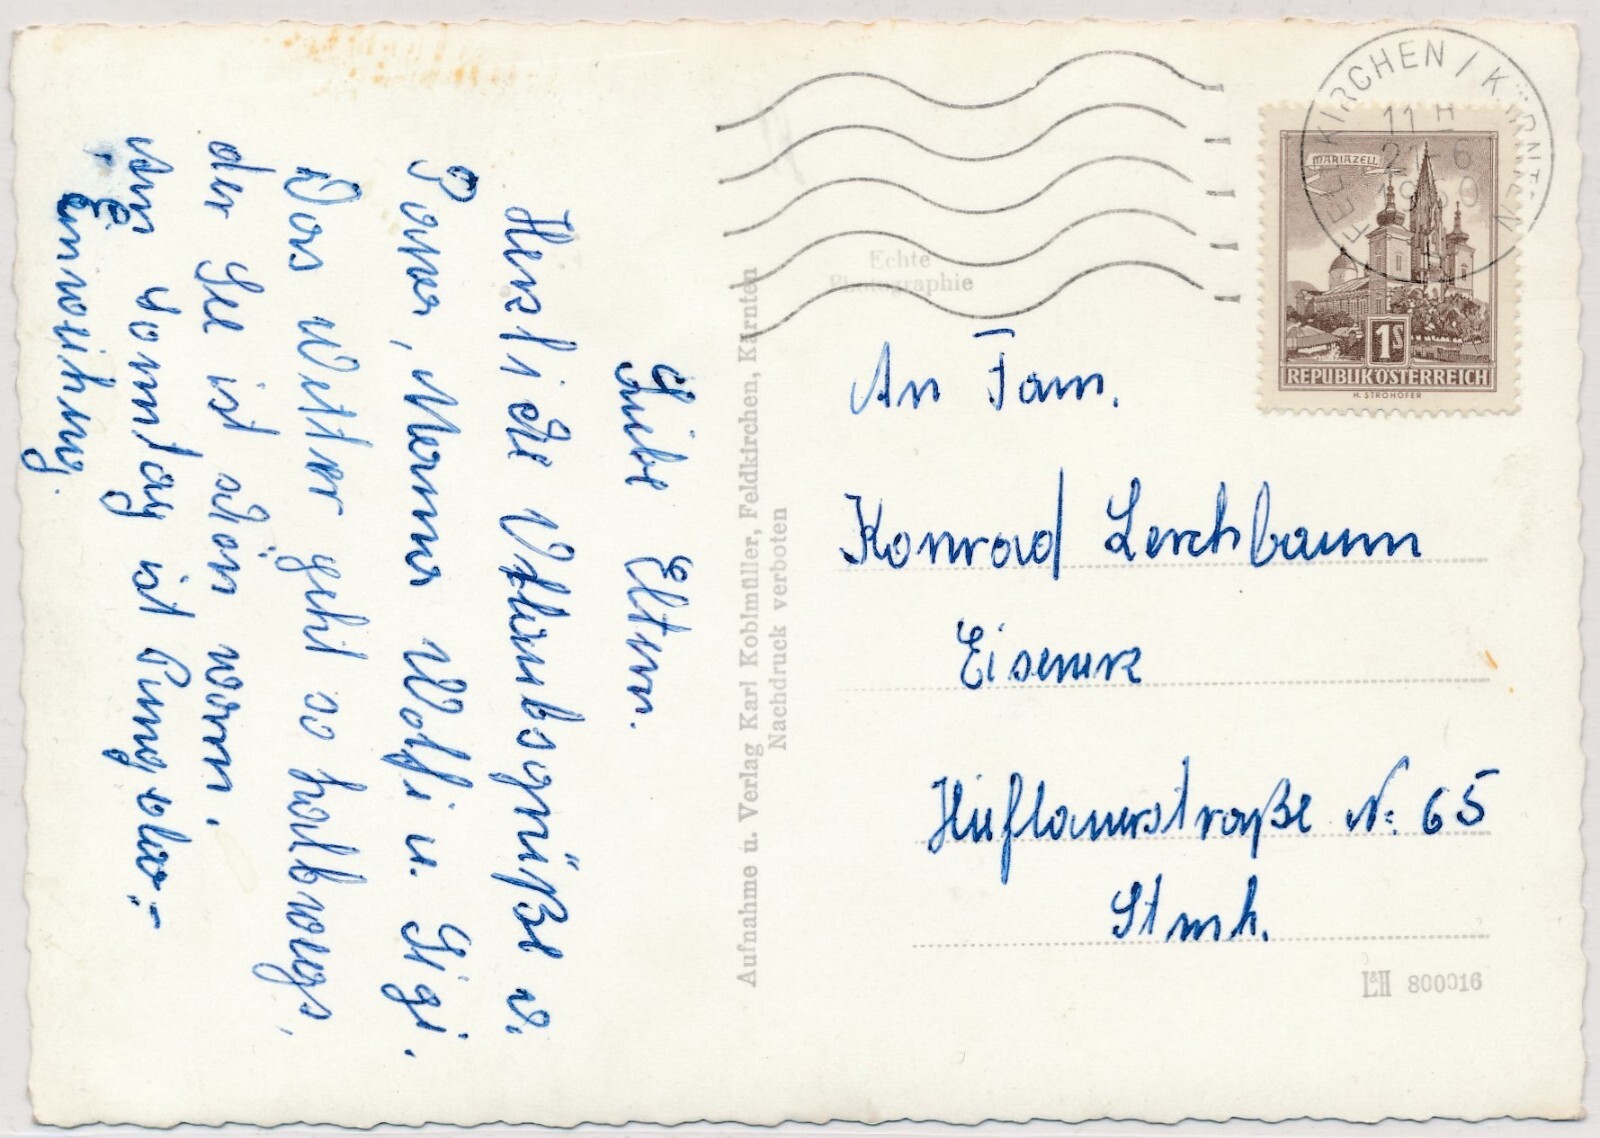 Liebe Eltern.
Herzliche Urlaubsgrüße v.
Papa, Mama Wolfi u. Gigi.
Das Wetter geht so halbwegs,
der See ist schön warm.
Am Sonntag ist Pung
Einweihung.
Aufnahme u. Verlag Karl Koblmüller, Feldkirchen, Kärnten
Nachdruck verboten
Echte
Photographie
FELDKIRCHEN / KÄRNTEN
11 H
21-6
1960
MARIAZELL
1S
REPUBLIK ÖSTERREICH
H. STROHOFER
An Fam.
Konrad Lerchbaum
Eisenerz
Hieflauerstraße N: 65
Stmk.
L&H 800016